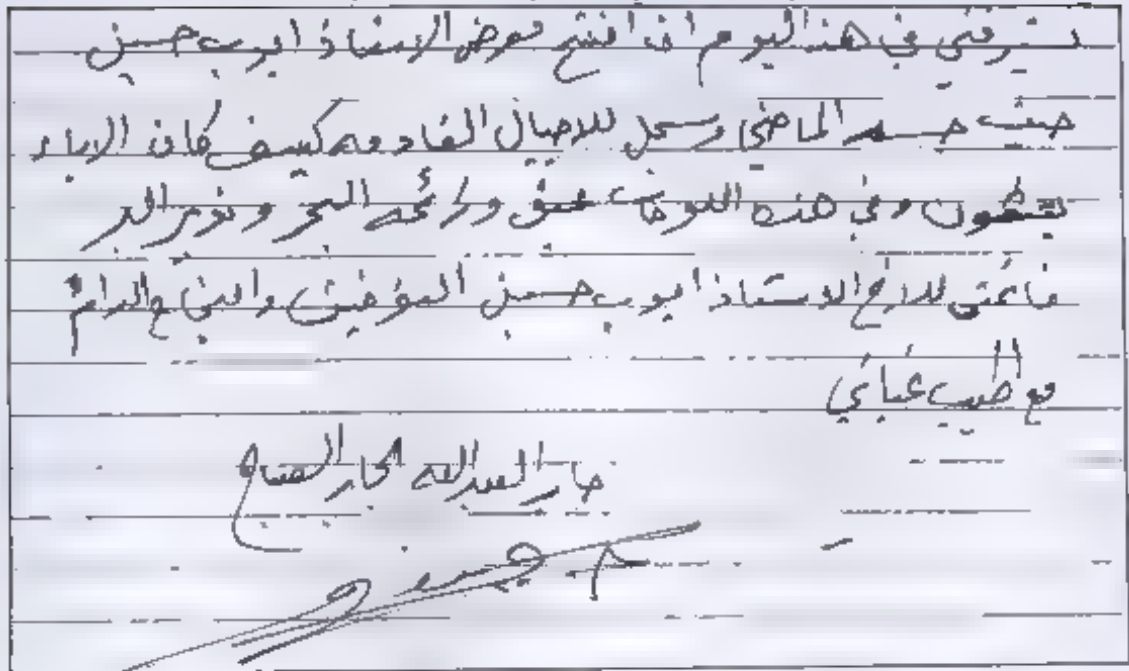 تشرفني في هذا اليوم ان افتتح معرض الاستاذ ايوب حسين
حيث جسد الماضي وسجل للاجيال القادمه كيف كان الاباء
يعيشون وفي هذه اللوحات عبق ورائحه البحر و البر
فأتمنى للاخ الاستاذ ايوب حسين التوفيق والنجاح الدائم
مع اطيب تمنياتي
جابر العبدالله الجابر الصباح